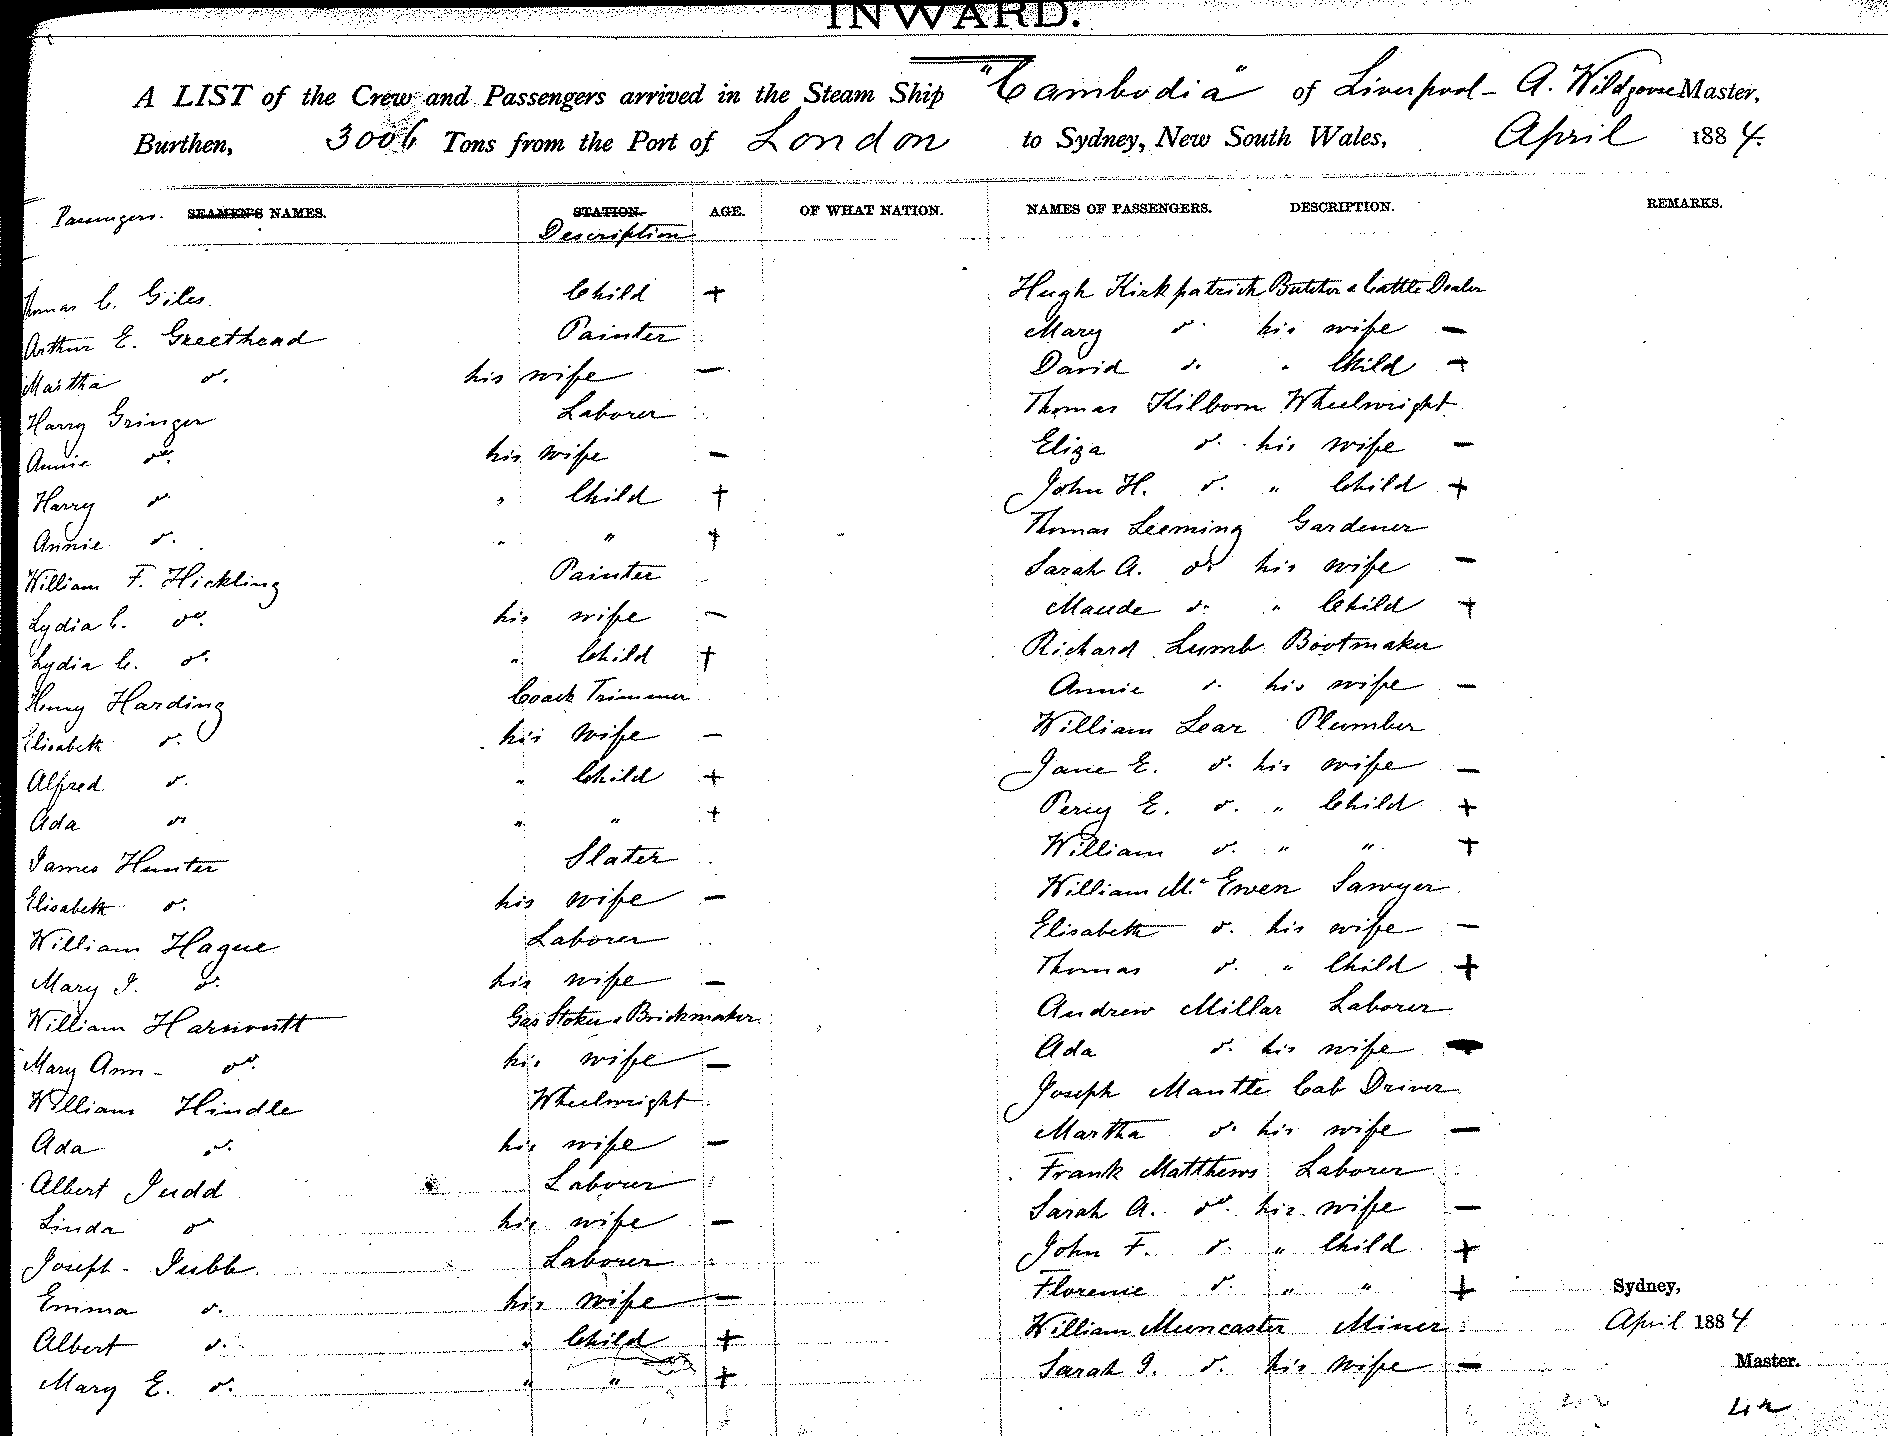 INWARD.
A LIST of the Crew and Passengers arrived in the Steam Ship "Cambodia" of Liverpool - A. Wildgoose Master,
Burthen, 3006 Tons from the Port of London to Sydney, New South Wales, April 1884.
Passengers. SEAMEN'S NAMES. STATION. AGE. OF WHAT NATION. NAMES OF PASSENGERS. DESCRIPTION. REMARKS.
Description
Thomas C. Giles. Child +
Arthur E. Greethead Painter
Martha do. his wife —
Harry Gringer Laborer
Annie do. his wife —
Harry do " Child +
Annie do. " " +
William F. Hickling Painter
Lydia C. do. his wife —
Lydia C. do. " Child +
Henry Harding Coach Trimmer
Elisabeth do. his wife —
Alfred do. " Child +
Ada do " " +
James Hunter Slater
Elisabeth do. his wife —
William Hague Laborer
Mary J. do. his wife —
William Gas Stoker & Brickmaker
Mary Ann - do. his wife —
William Hindle Wheelwright
Ada do. his wife —
Albert Judd Labourer
Linda do his wife —
Joseph - Jubb. Laborer
Emma do. his wife —
Albert do. " Child +
Mary E. do. " " +
Hugh Kirkpatrick Butcher & Cattle Dealer
Mary do. his wife —
David do. " Child +
Thomas Kilborn Wheelwright
Eliza do. his wife —
John H. do. " Child +
Thomas Leeming Gardener
Sarah A. do. his wife —
Maude do. " Child +
Richard Lumb Bootmaker
Annie do. his wife —
William Lear Plumber
Jane E. do. his wife —
Percy E. do. " Child +
William do. " " +
William Mc Ewen Sawyer
Elisabeth do. his wife —
Thomas do. " Child +
Andrew Millar Laborer
Ada do. his wife —
Joseph Mantle Cab Driver
Martha do. his wife —
Frank Matthews Laborer
Sarah A. do. his wife —
John F. do. " Child +
Florence do. " " +
William Muncaster Miner
Sarah J. do. his wife —
Sydney,
April 1884
Master.